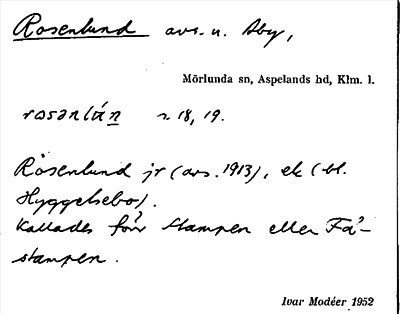 Rosenlund avs. u. Åby,
Mörlunda sn, Aspelands hd, Klm. l.
rosənlún ~ 18, 19.
Rosenlund jr (avs. 1913), ek (bl.
Hyggelsebo).
Kallades förr Stampen eller Få-
stampen.
Ivar Modéer 1952